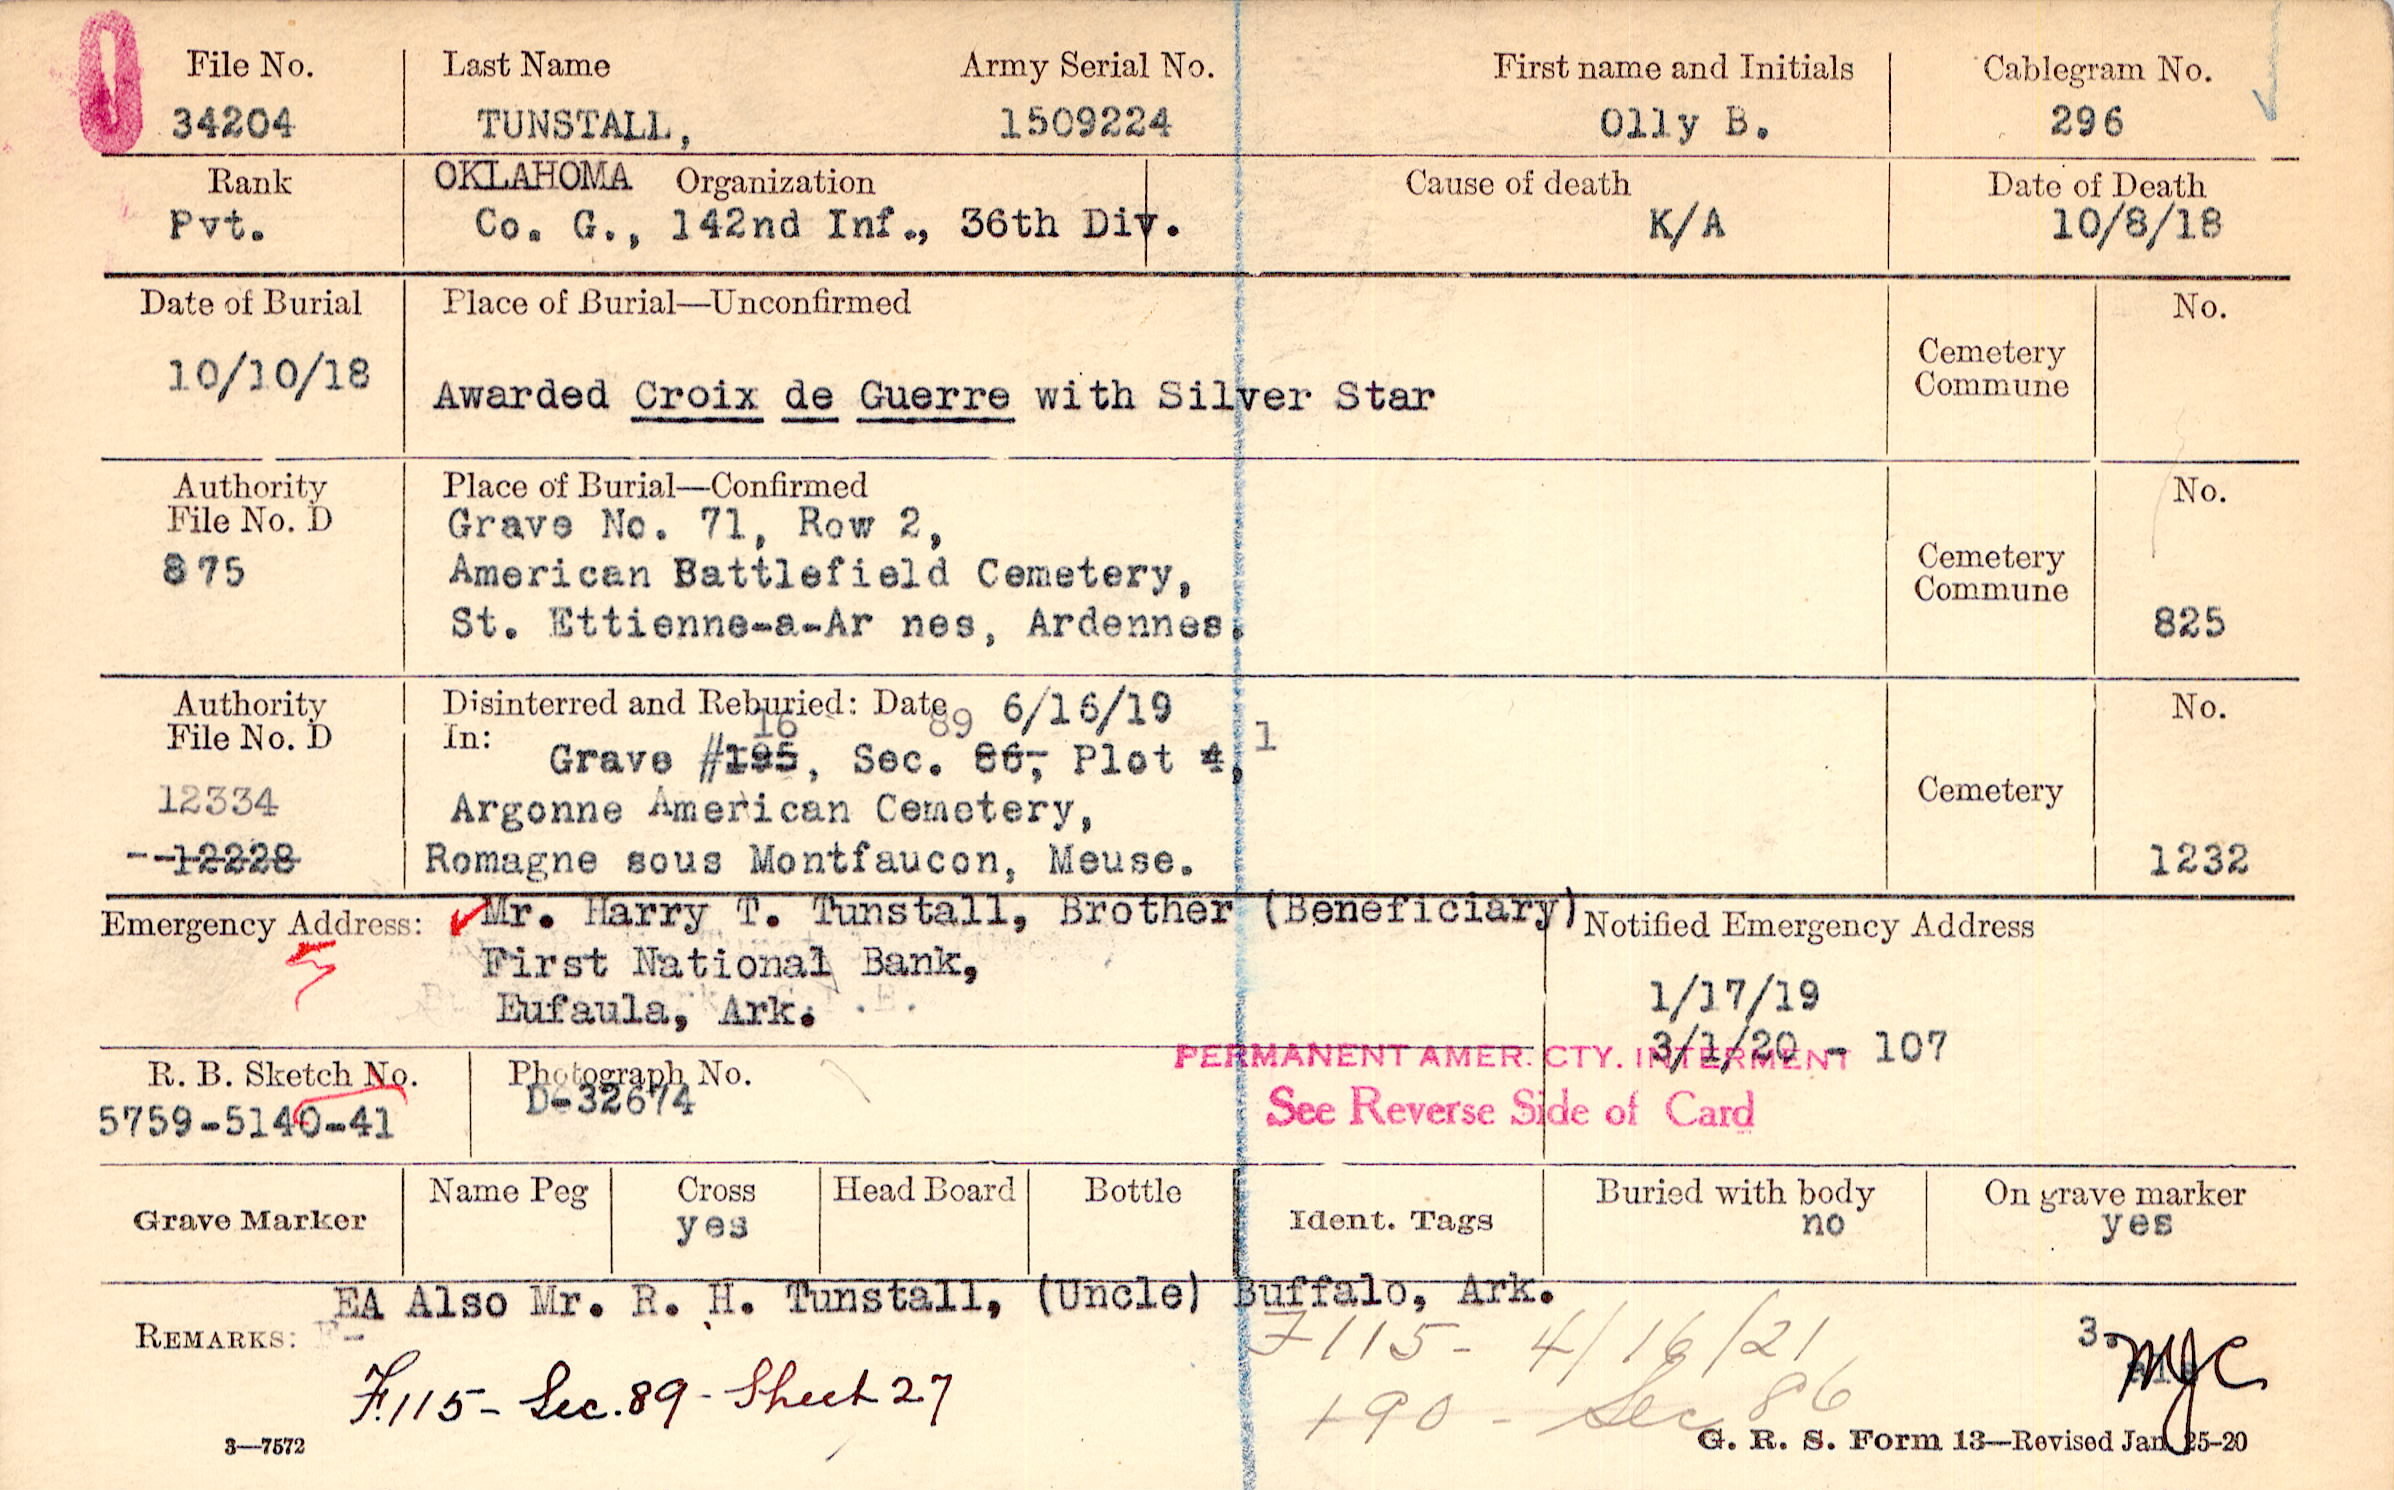 File No. Last Name Army Serial No. First name and Initials Cablegram No.
34204 TUNSTALL, 1509224 Olly B. 296
Rank OKLAHOMA Organization Cause of death Date of Death
Pvt. Co. G., 142nd Inf., 36th Div. K/A 10/8/18
Date of Burial Place of Burial—Unconfirmed No.
Cemetery
10/10/18 Commune
Awarded Croix de Guerre with Silver Star
Authority Place of Burial—Confirmed No.
File No. D Grave No. 71, Row 2,
875 American Battlefield Cemetery, Cemetery
Commune
St. Ettienne-a-Ar nes, Ardennes. 825
Authority Disinterred and Reburied: Date 6/16/19 No.
File No. D In: 16 89 1
Grave #195, Sec. 86, Plot 4,
12334 Argonne American Cemetery, Cemetery
--12228 Romagne sous Montfaucon, Meuse. 1232
Emergency Address: Mr. Harry T. Tunstall, Brother (Beneficiary) Notified Emergency Address
First National Bank,
Eufaula, Ark. 1/17/19
3/1/20 - 107
PERMANENT AMER. CTY. INTERMENT
R. B. Sketch No. Photograph No.
5759-5140-41 D-32674 See Reverse Side of Card
Grave Marker Name Peg Cross Head Board Bottle Ident. Tags Buried with body On grave marker
yes no yes
EA Also Mr. R. H. Tunstall, (Uncle) Buffalo, Ark.
REMARKS: F115- 4/16/21 3.
F.115- Sec. 89- Sheet 27 190 - Sec 86 MJC
3—7572 G. R. S. Form 13—Revised Jan 25-20